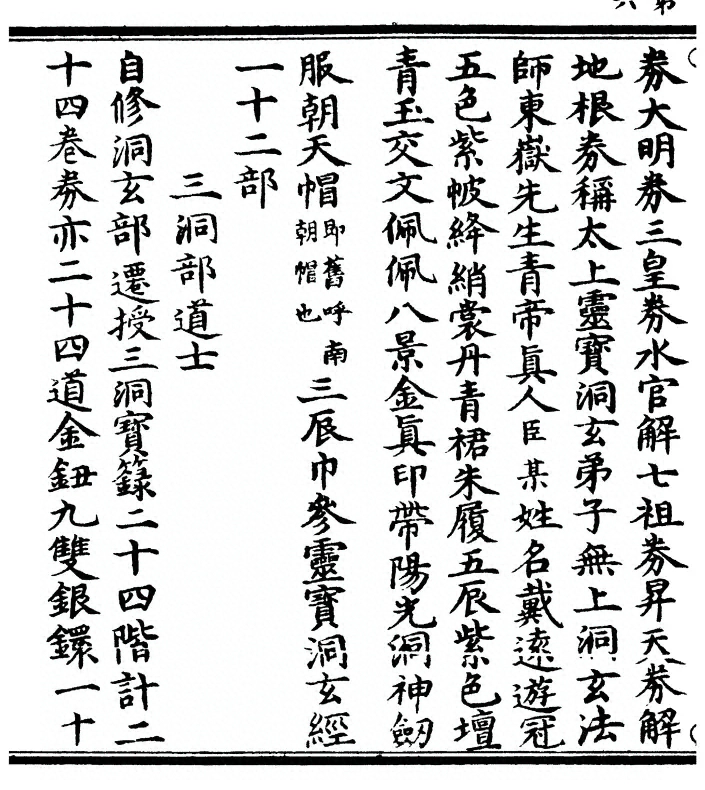 券大明券三皇券水官解七祖券昇天券解
地根券稱太上靈寶洞玄弟子無上洞玄法
師東嶽先生青帝眞人臣某姓名戴遠遊冠
五色紫帔絳綃裳丹青裙朱履五辰紫色壇
青玉交文佩佩八景金眞印帶陽光洞神劒
服朝天帽即舊呼南朝帽也三辰巾參靈寶洞玄經
一十二部
三洞部道士
自修洞玄部遷授三洞寶籙二十四階計二
十四卷券亦二十四道金鈕九雙銀鐶一十